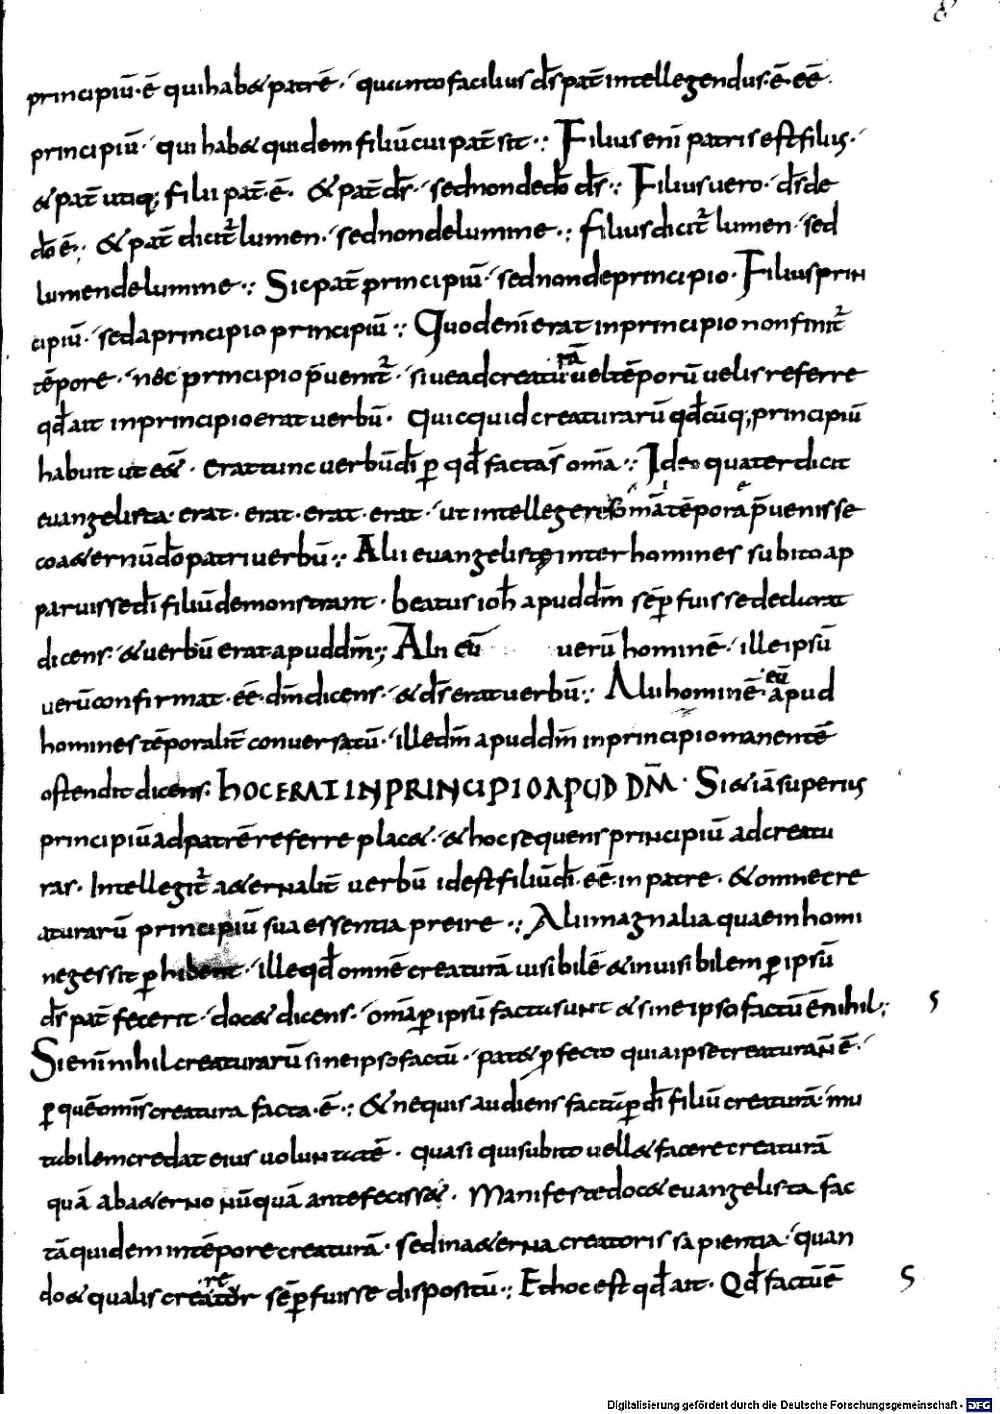 principiū· ē qui hab& patrē· quanto facilius d̄s pat̄ intellegendus· ē· eē·
principiū· qui hab& quidem filiū cui pat̄ sit·: Filius eni̅ patris est filius·
& pat̄ utiq; filii pat̄· ē· & pat̄ d̄s· sed non de d̄o d̄s·: Filius uero· d̄s de
d̄o ē·; & pat̄ dicit᷑ lumen· sed non de lumine·: filius dicit᷑ lumen· sed
lumen de lumine·: Sic pat̄ principiū· sed non de principio· Filius prin
cipiū· sed a principio principiū·: Quod eni̅ erat in principio non finit᷑
tēpore· nec principio p̄uenit᷑· siue ad creatu`rā´ uel tēporū uelis referre
qđ ait in principio erat uerbū· Quicquid creaturarū qđcūq; principiū
habuit ut ēē& · erat tunc uerbū dī ꝑ qđ facta s̄ om̄a·: Ideo quater dicit
euangelista· erat· erat· erat· erat· ut intellegeres om̄a tēpora p̄uenisse
coa&ernū d̄o patri uerbū·: Alii euangelistę inter homines subito ap
paruisse dī filiū demonstrant· beatus ioh̄ apud d̄m sēꝑ fuisse declarat
dicens· & uerbū erat apud d̄m·; Alii eū uerū hominē· ille ipsū
uerū confirmat· eē· d̄m dicens· & d̄s erat uerbū·: Alii hominē· `eū´ apud
homines tēporalit̄ conuersatū· ille d̄m apud d̄m in principio manentē
ostendit dicens· HOC ERAT IN PRINCIPIO APUD DM̄· Si & iā superius
principiū ad patrē referre plac&· & hoc sequens principiū ad creatu
ras· Intellegit᷑ a&ernalit̄ uerbū id est filiū dī· eē· in patre· & omne cre
aturarū principiū sua essentia preire·: Alii magnalia quae in homi
ne gessit ꝑhibent· ille qđ omnē creaturā uisibilē & inuisibilem ꝑ ipsū
d̄s pat̄ fecerit· doc& dicens· om̄a ꝑ ipsū facta sunt & sine ipso factū ē nihil·;
Si eni̅ nihil creaturarū sine ipso factū· pat& ꝓfecto quia ipse creatura n̄ ē·
ꝑ quē omīs creatura facta· ē·: & ne quis audiens factū ꝑ dī filiū creaturā· mu
tabilem credat eius uoluntatē· quasi qui subito uell& facere creaturā
quā ab a&erno nūquā ante fecisse&· Manifeste doc& euangelista fac
tā quidem in tēpore creaturā· sed in a&erna creatoris sapientia· quan
do & qualis crea`re´tur sēꝑ fuisse dispositū·: Et hoc est qđ ait· Qđ factū ē